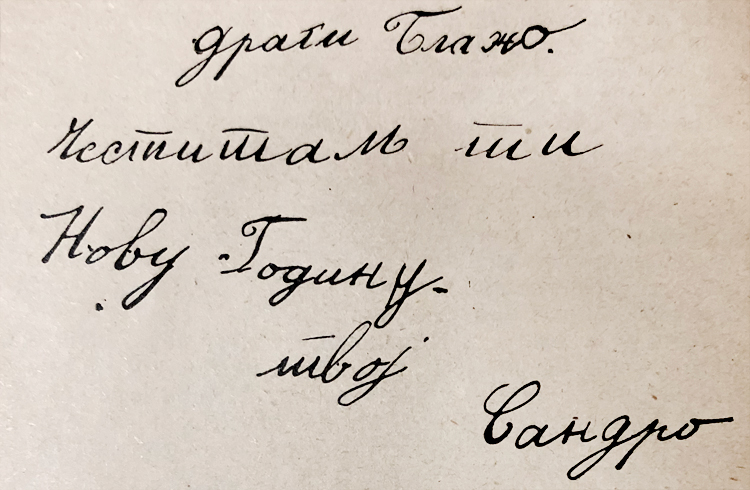 драги Блажо.
Честитам ти
Нову Годину.
твој
Сандро